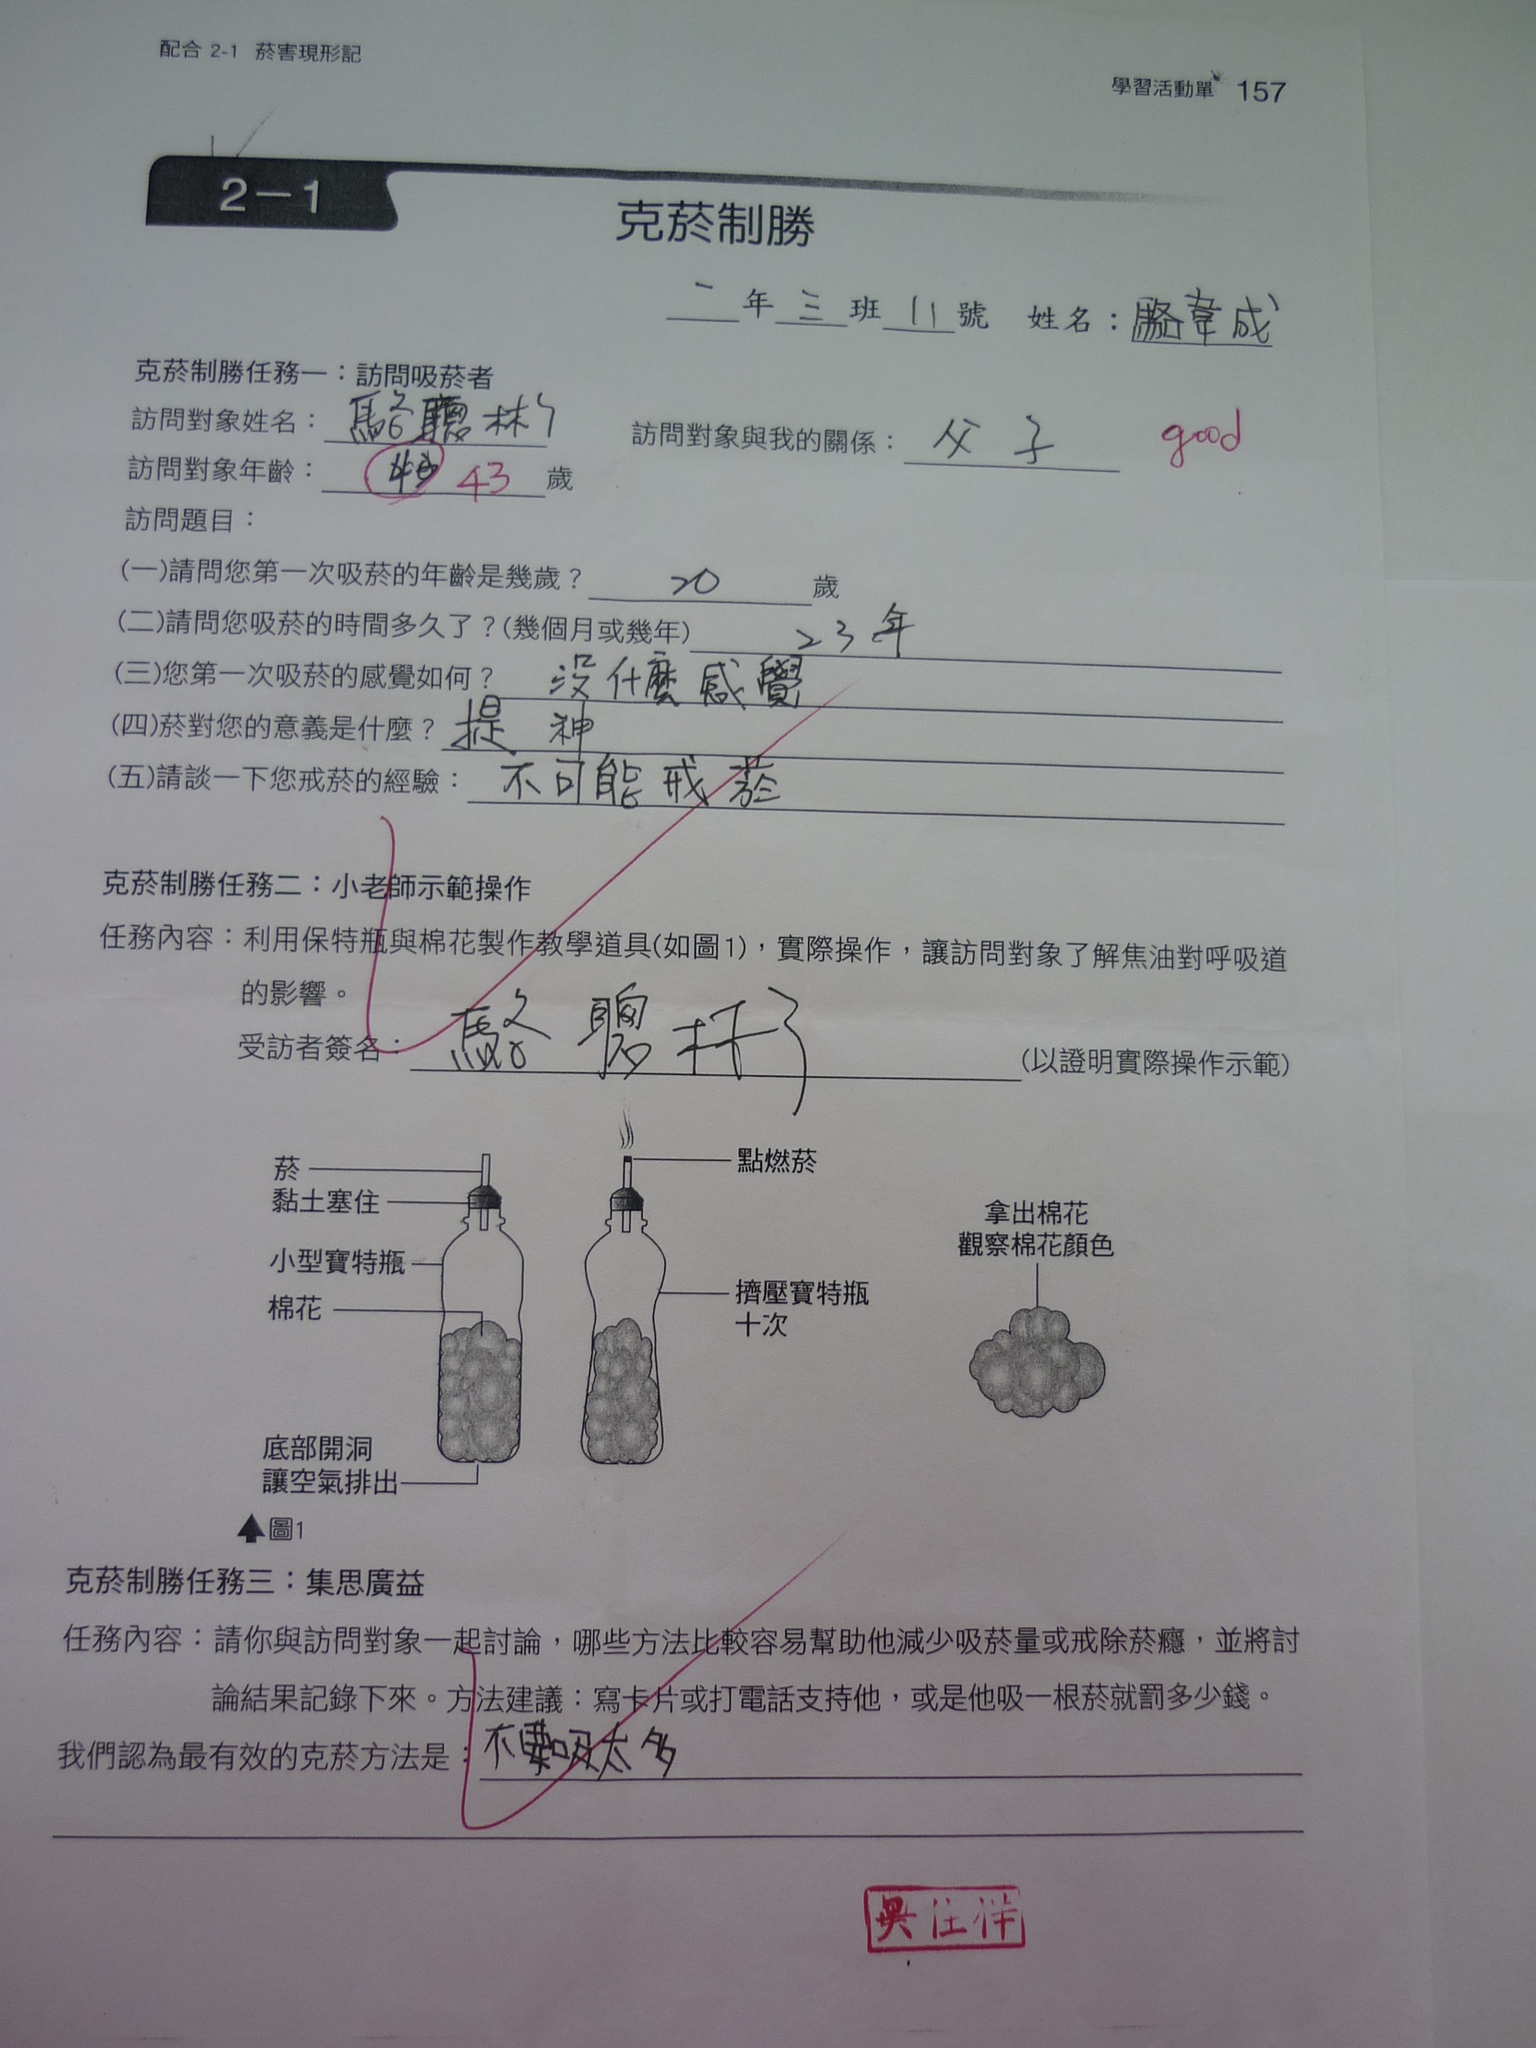 配合 2-1 菸害現形記
學習活動單 157
2－1
克菸制勝
一年三班11號 姓名：駱韋成
克菸制勝任務一：訪問吸菸者
訪問對象姓名：駱聰彬 訪問對象與我的關係：父子 good
訪問對象年齡：43 歲
訪問題目：
(一)請問您第一次吸菸的年齡是幾歲？20歲
(二)請問您吸菸的時間多久了？(幾個月或幾年)23年
(三)您第一次吸菸的感覺如何？沒什麼感覺
(四)菸對您的意義是什麼？提神
(五)請談一下您戒菸的經驗：不可能戒菸
克菸制勝任務二：小老師示範操作
任務內容：利用保特瓶與棉花製作教學道具(如圖1)，實際操作，讓訪問對象了解焦油對呼吸道
的影響。
受訪者簽名：駱聰彬(以證明實際操作示範)
菸
黏土塞住
小型寶特瓶
棉花
底部開洞
讓空氣排出
點燃菸
擠壓寶特瓶
十次
拿出棉花
觀察棉花顏色
圖1
克菸制勝任務三：集思廣益
任務內容：請你與訪問對象一起討論，哪些方法比較容易幫助他減少吸菸量或戒除菸癮，並將討
論結果記錄下來。方法建議：寫卡片或打電話支持他，或是他吸一根菸就罰多少錢。
我們認為最有效的克菸方法是：不要吸太多